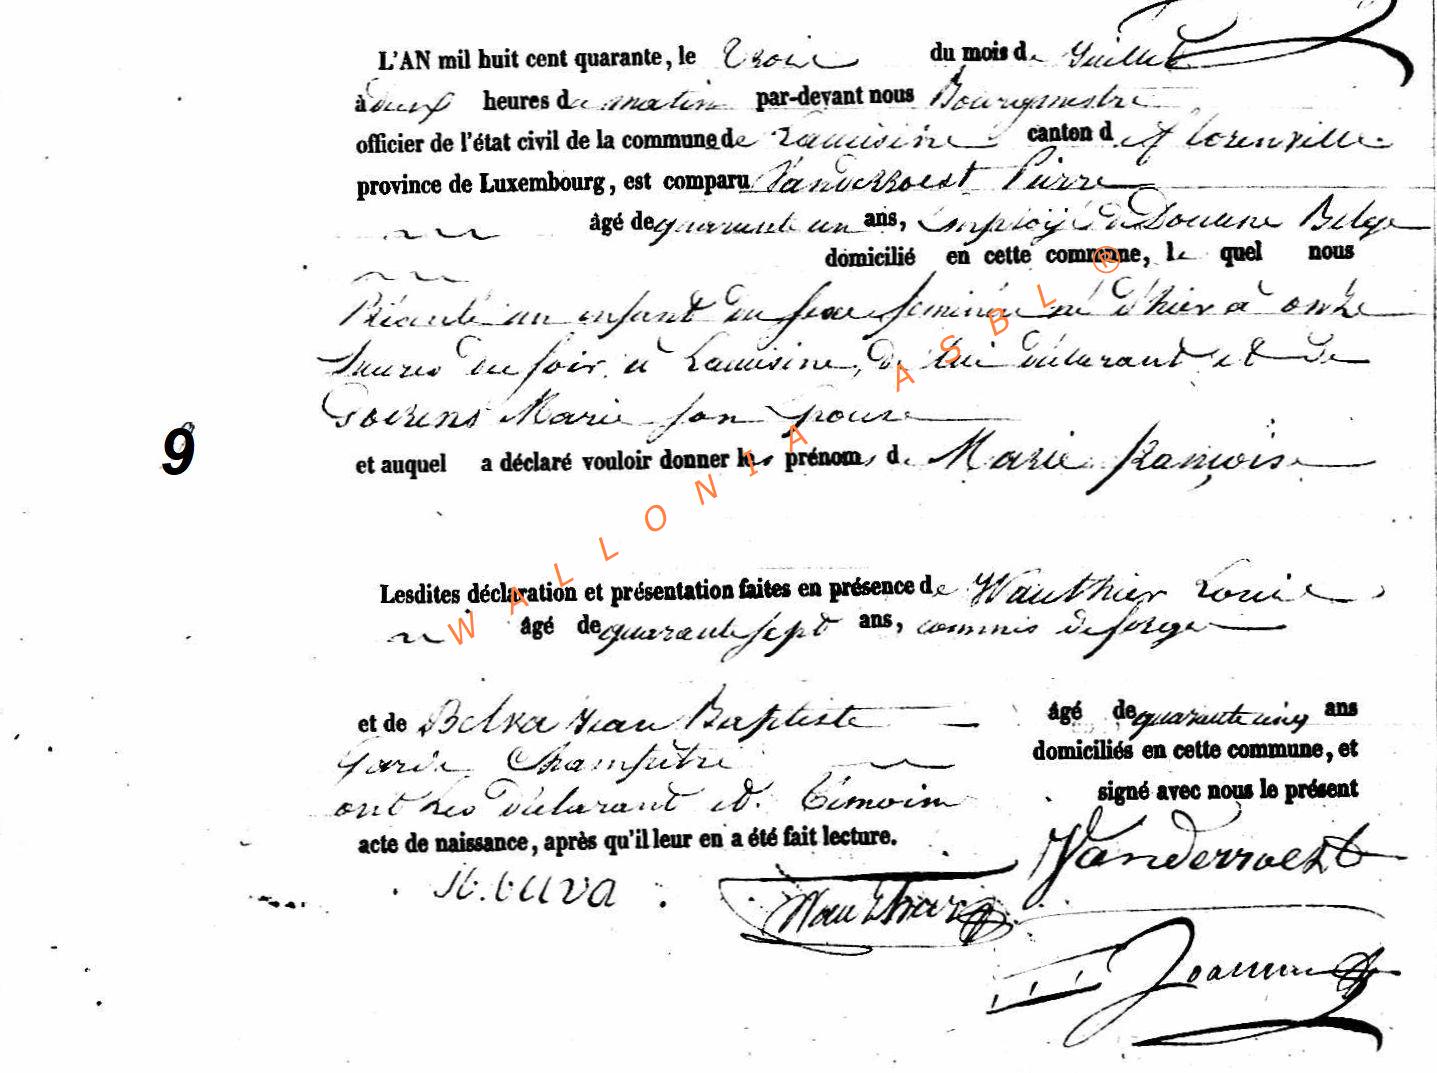 L'AN mil huit cent quarante, le Trois du mois de Juillet
à deux heures du matin par-devant nous Bourgmestre
officier de l'état civil de la commune de Lacuisine canton de florenville
province de Luxembourg, est comparu Vanderroest Pierre
âgé de quarante un ans, Employé de Douane Belge
domicilié en cette commune, le quel nous
Présenté un enfant du sexe feminin né d'hier à onze
heures du soir à Lacuisine, de lui déclarant et de
Goerens Marie son Epouse
9
et auquel a déclaré vouloir donner les prénoms de Marie françoise
Lesdites déclaration et présentation faites en présence de Wauthier Louis
âgé de quarante sept ans, commis de forge
et de Belva Jean Baptiste âgé de quarante cinq ans
Garde Champêtre domiciliés en cette commune, et
ont les déclarant et témoins signé avec nous le présent
acte de naissance, après qu'il leur en a été fait lecture.
Vanderroest
Wauthier
WALLONIA ASBL ®